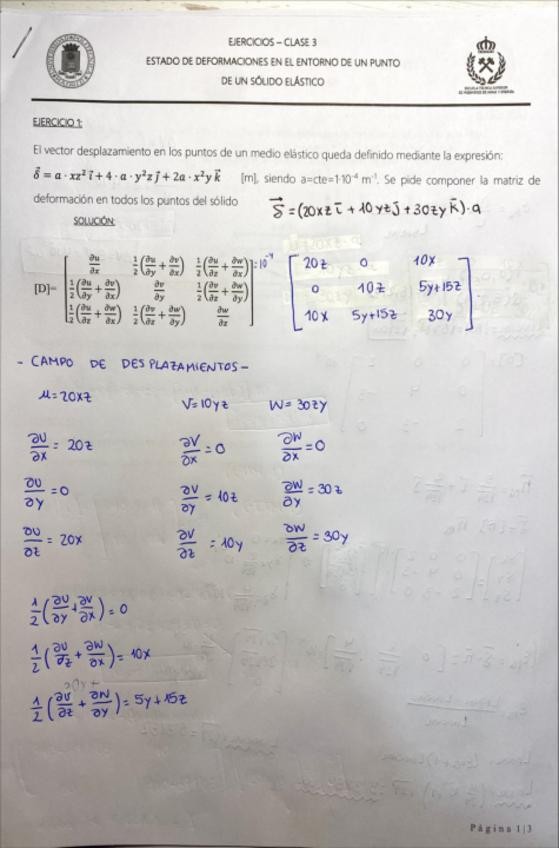 EJERCICIOS – CLASE 3
ESTADO DE DEFORMACIONES EN EL ENTORNO DE UN PUNTO
DE UN SÓLIDO ELÁSTICO
EJERCICIO 1:
El vector desplazamiento en los puntos de un medio elástico queda definido mediante la expresión:
δ⃗ = a · xz² i⃗ + 4 · a · y²z j⃗ + 2a · x²y k⃗ [m], siendo a=cte=1·10⁻⁴ m⁻¹. Se pide componer la matriz de
deformación en todos los puntos del sólido δ⃗ = (20xz i⃗ + 10yz j⃗ + 30zy k⃗)·a
SOLUCIÓN:
∂u/∂x 1/2(∂u/∂y + ∂v/∂x) 1/2(∂u/∂z + ∂w/∂x) :10⁻⁴ 20z 0 10x
[D]= 1/2(∂u/∂y + ∂v/∂x) ∂v/∂y 1/2(∂v/∂z + ∂w/∂y) 0 10z 5y+15z
1/2(∂u/∂z + ∂w/∂x) 1/2(∂v/∂z + ∂w/∂y) ∂w/∂z 10x 5y+15z 30y
- CAMPO DE DESPLAZAMIENTOS -
μ=20xz V=10yz W=30zy
∂U/∂x = 20z ∂V/∂x = 0 ∂W/∂x = 0
∂U/∂y = 0 ∂V/∂y = 10z ∂W/∂y = 30z
∂U/∂z = 20x ∂V/∂z = 10y ∂W/∂z = 30y
1/2(∂U/∂y + ∂V/∂x) = 0
1/2(∂U/∂z + ∂W/∂x) = 10x
1/2(∂V/∂z + ∂W/∂y) = 5y+15z
Página 1|3